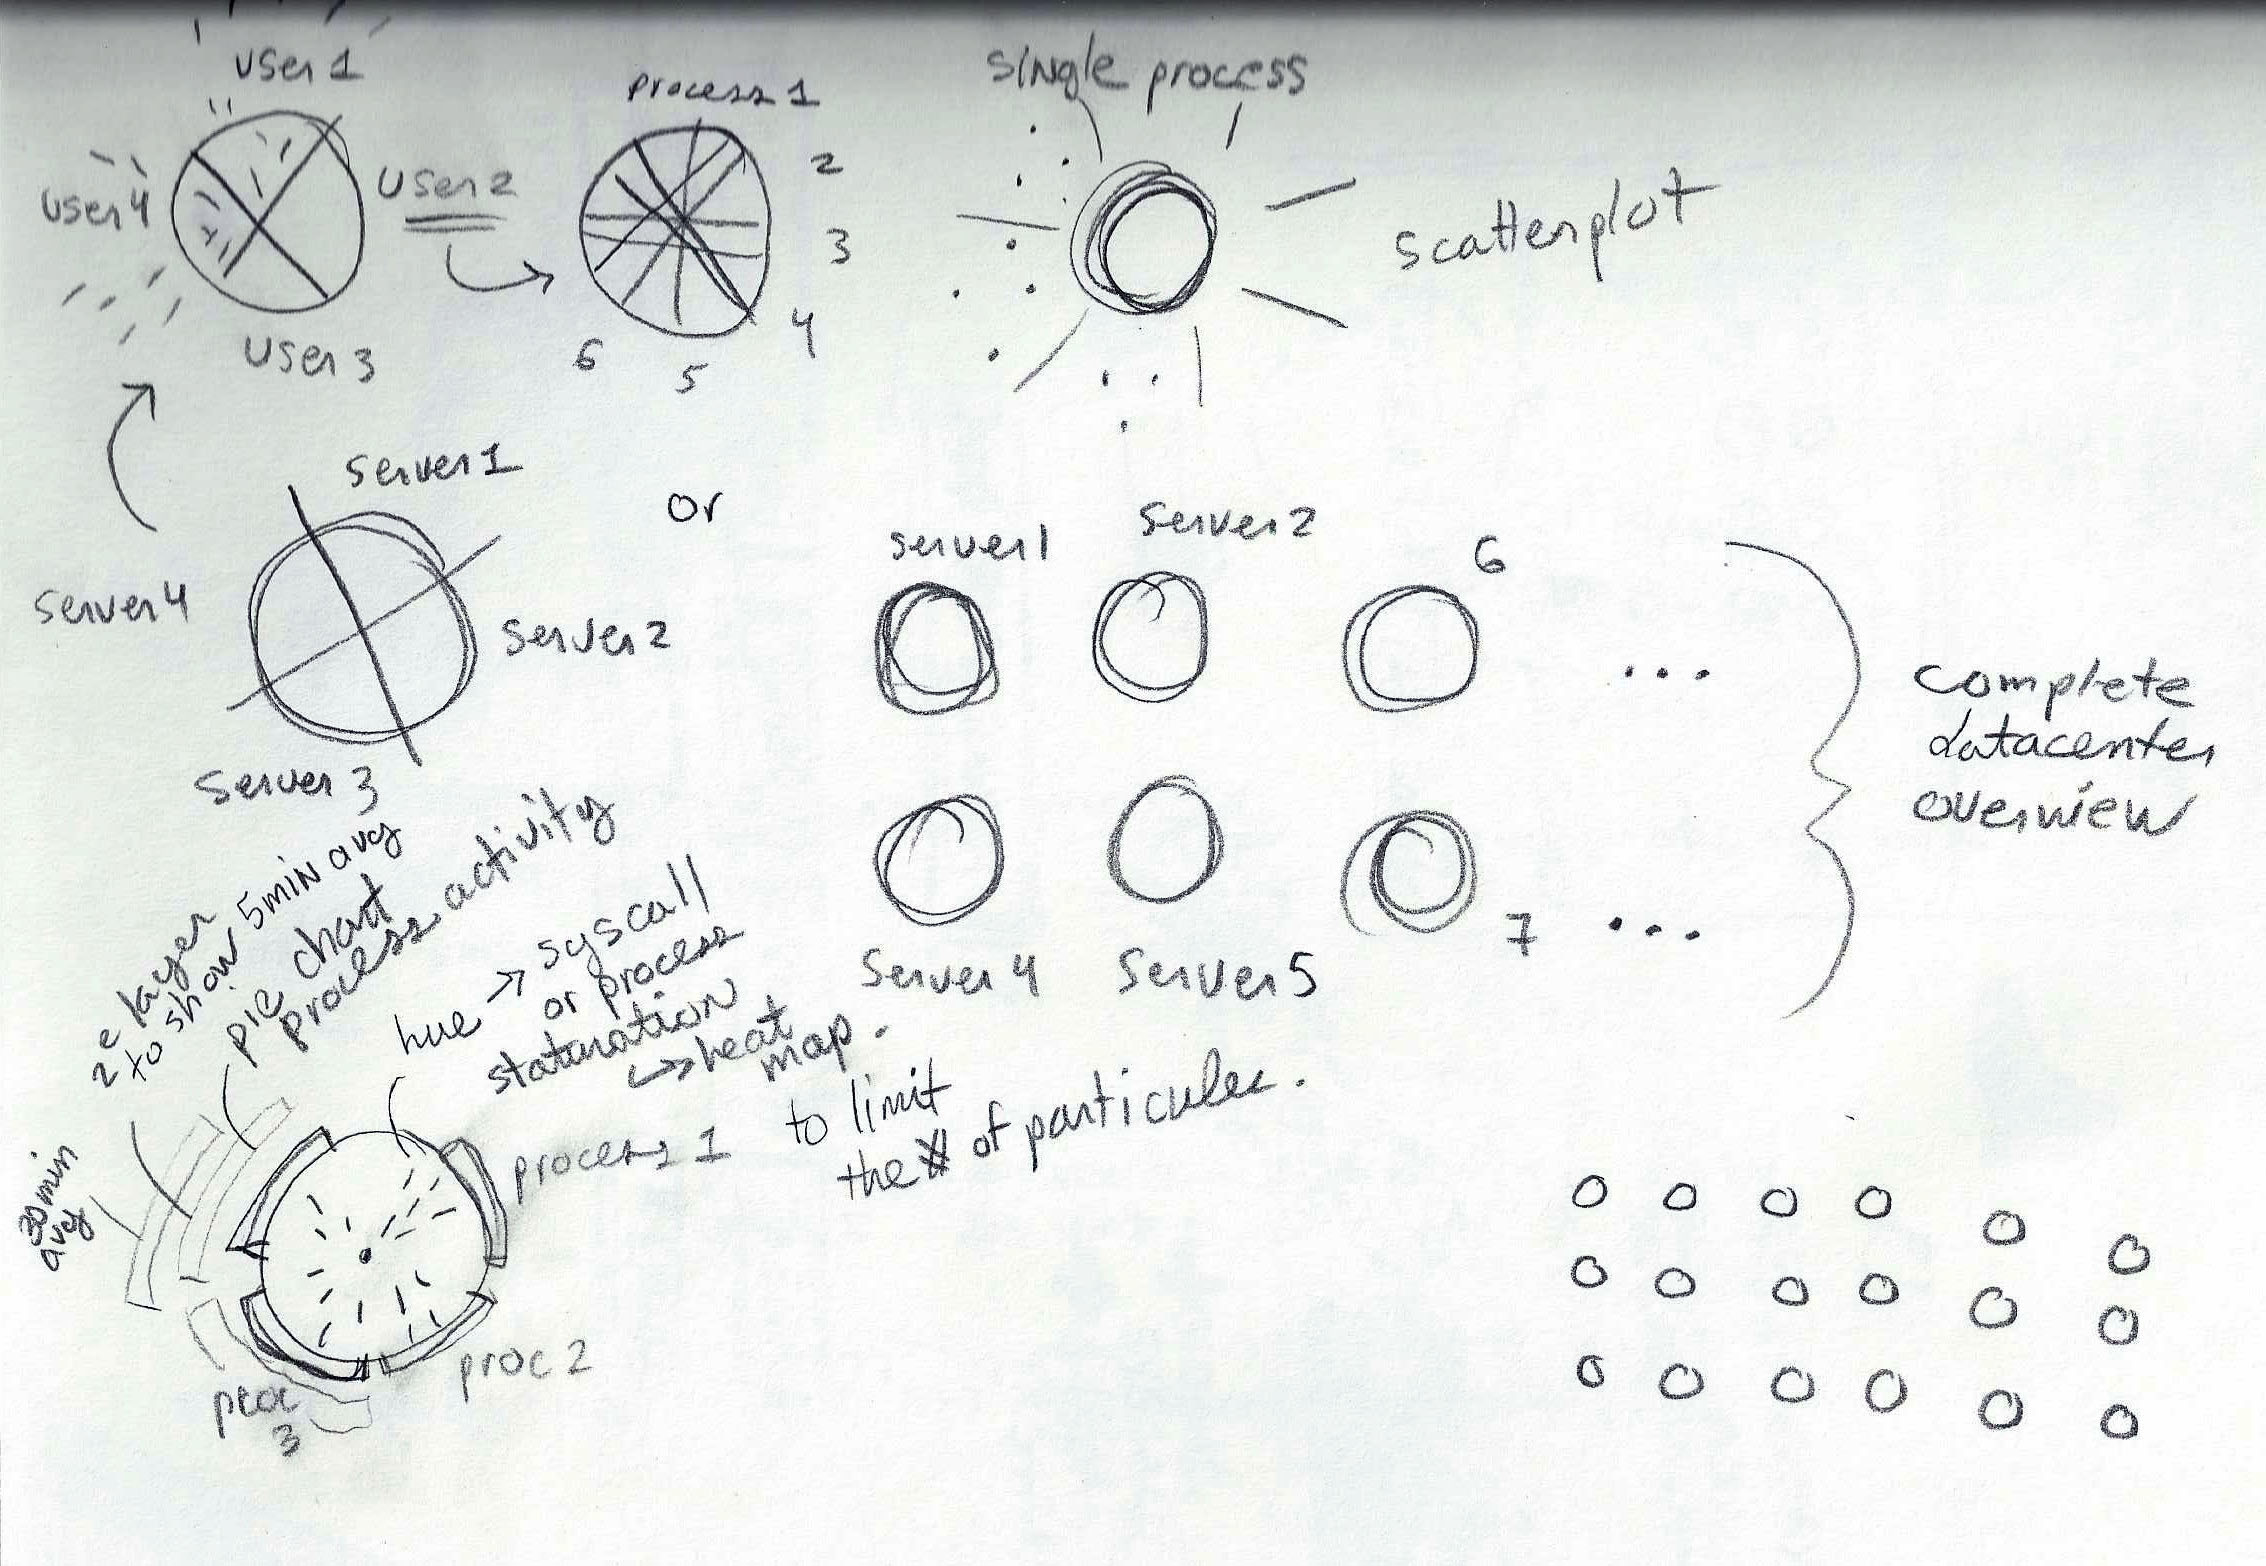 user 1
user 4
user 2
user 3
process 1
2
3
4
5
6
single process
scatterplot
server 1
server 2
server 3
server 4
or
server 1
server 2
6
...
server 4
server 5
7
...
complete
datacenter
overview
2e layer
to show 5min avg
pie chart
process activity
hue → syscall
or process
staturation
↳ heat
map.
to limit
the # of particules.
30min
avg
process 1
proc 2
proc
3